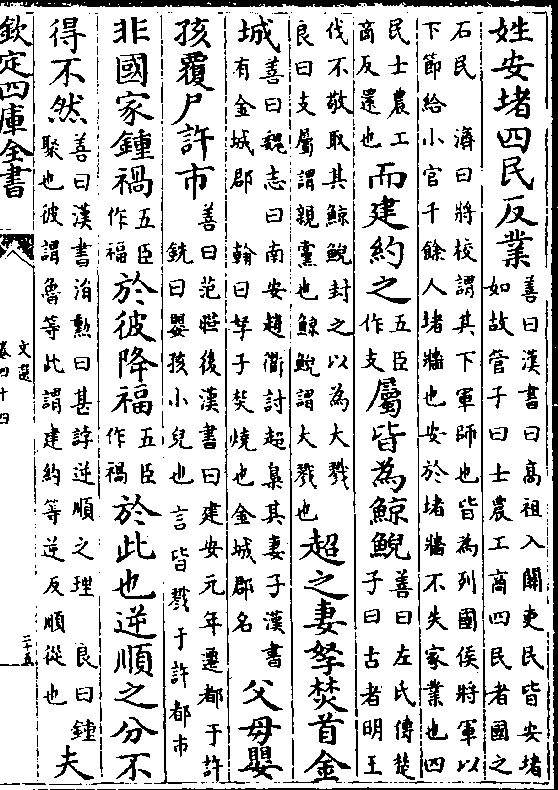 姓安堵四民反業善曰漢書曰高祖入關吏民皆安堵
如故管子曰士農工商四民者國之
石民　濟曰將校謂其下軍師也皆為列國侯將軍以
下節給小官千餘人堵牆也安於堵牆不失家業也四
民士農工
商反還也而建約之五臣
作支屬皆為鯨鯢善曰左氏傳楚
子曰古者明王
伐不敬取其鯨鯢封之以為大戮
良曰支屬謂親黨也鯨鯢謂大戮也超之妻孥焚首金
城善曰魏志曰南安趙衢討超梟其妻子漢書
有金城郡　翰曰孥子焚燒也金城郡名父母嬰
孩覆尸許市善曰范曄後漢書曰建安元年遷都于許
銑曰嬰孩小兒也　言皆戮于許都市
非國家鍾禍五臣
作福於彼降福五臣
作禍於此也逆順之分不
得不然善曰漢書洧勲曰甚誖逆順之理　良曰鍾
聚也彼謂魯等此謂建約等逆反順從也夫
欽定四庫全書
文選
卷四十四